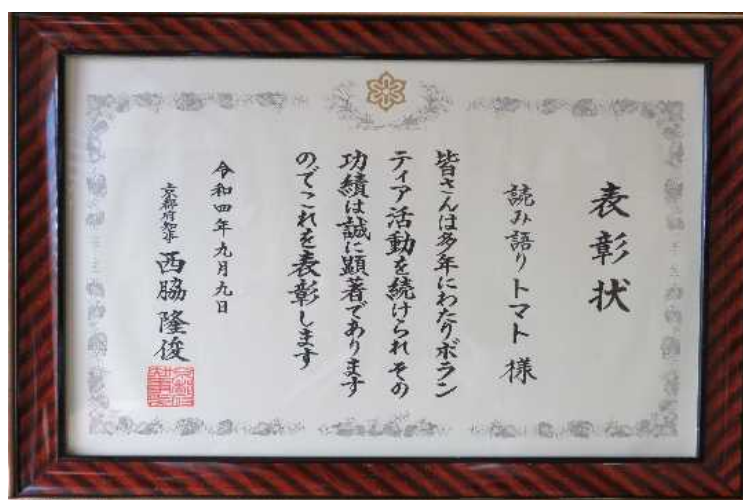 表彰状
読み語りトマト様
皆さんは多年にわたりボラン
ティア活動を続けられその
功績は誠に顕著であります
のでこれを表彰します
令和四年九月九日
京都府知事 西脇隆俊